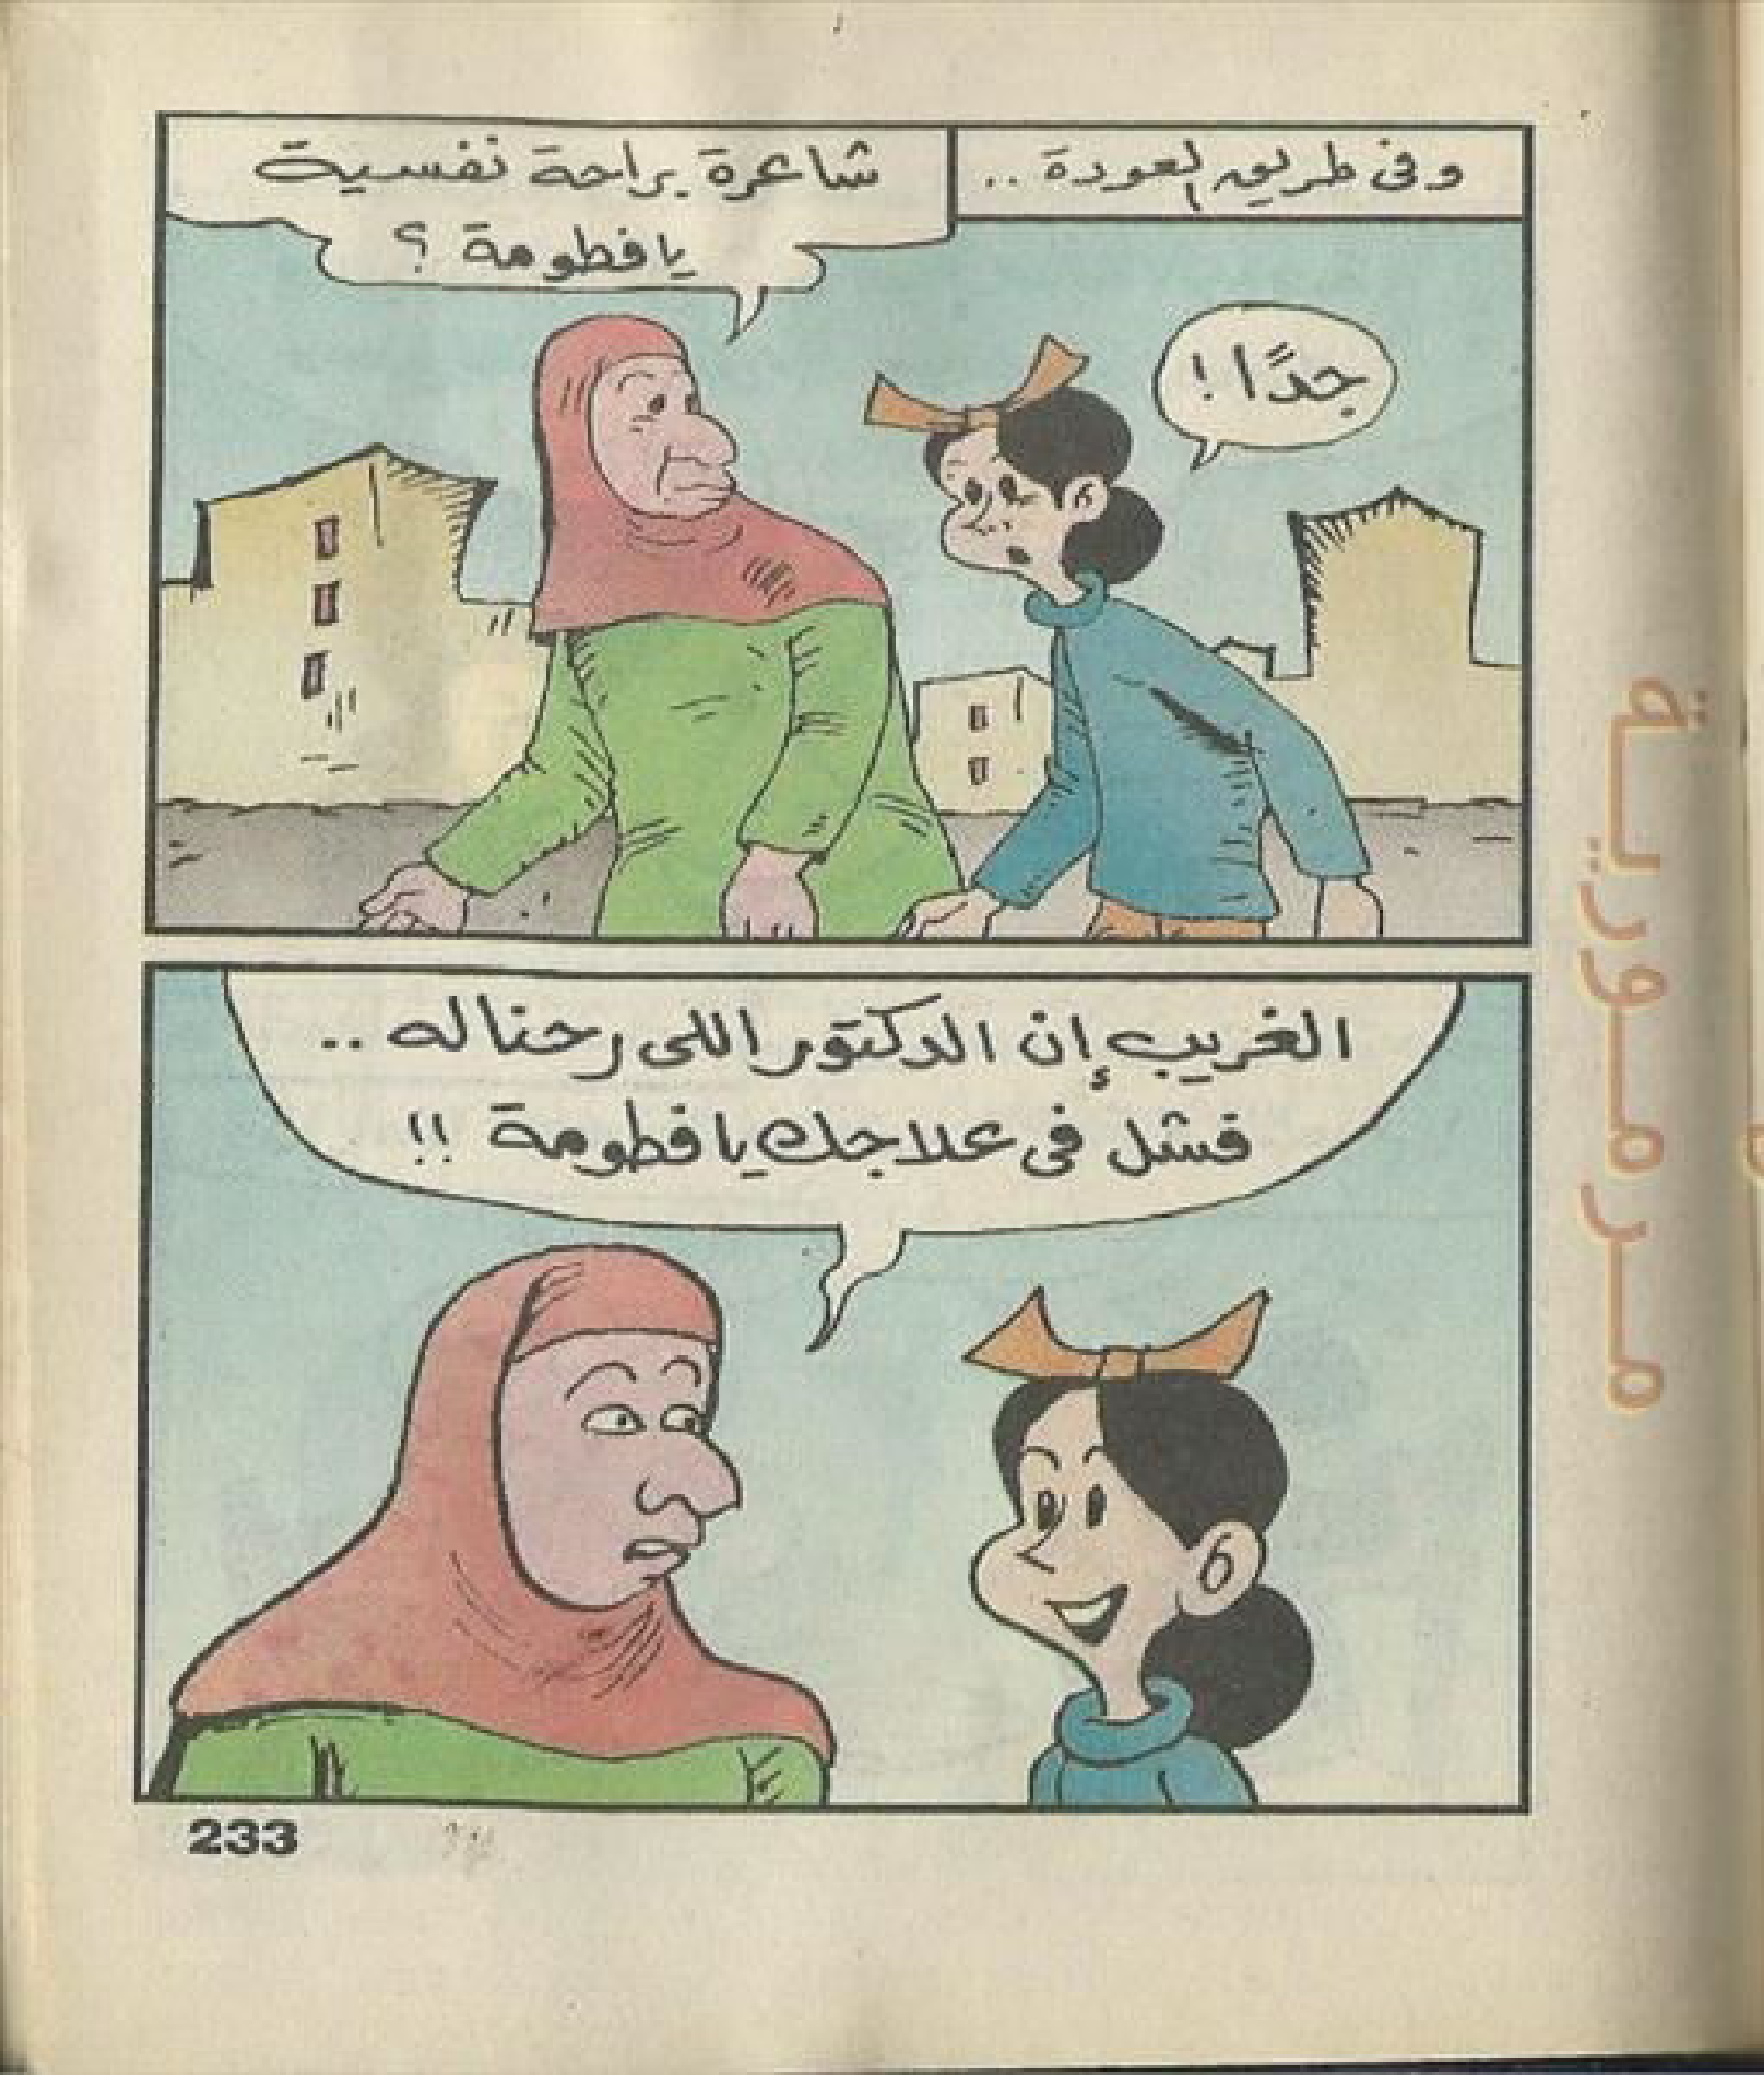 وفى طريق العودة ..
شاعرة براحة نفسية
يا فطومة ؟
جدًا !
الغريب إن الدكتور اللى رحناله ..
فشل فى علاجك يا فطومة !!
233
مرمورية